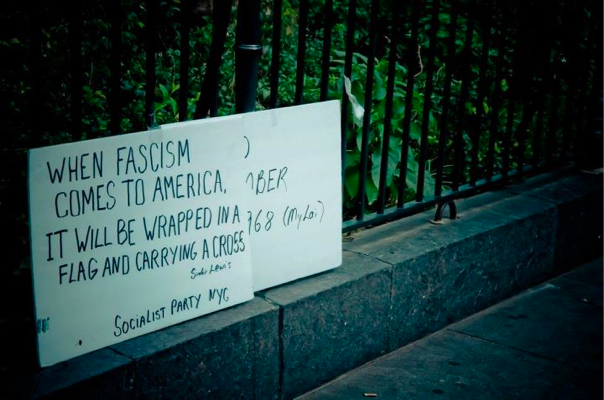 WHEN FASCISM
COMES TO AMERICA,
IT WILL BE WRAPPED IN A
FLAG AND CARRYING A CROSS
Lewis
SOCIALIST PARTY NYC
)
BER
968 (My Lai)